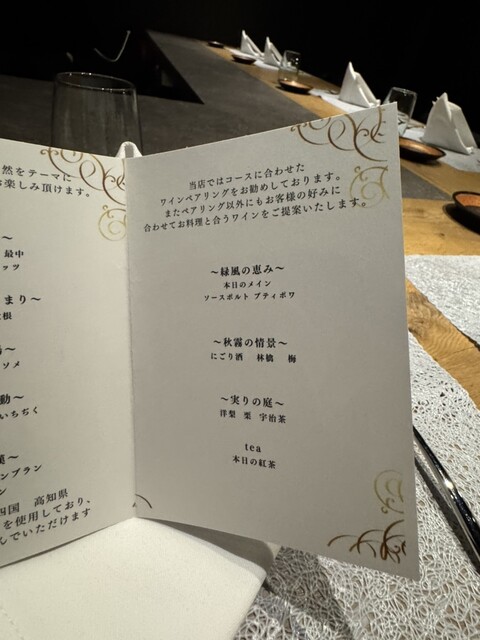 然をテーマに
お楽しみ頂けます。
～
最中
ッツ
まり～
根
～
ソメ
動～
いちぢく
～
ンブラン
ン
四国 高知県
を使用しており、
んでいただけます
当店ではコースに合わせた
ワインペアリングをお勧めしております。
またペアリング以外にもお客様の好みに
合わせてお料理と合うワインをご提案いたします。
～緑風の恵み～
本日のメイン
ソースポルト プティポワ
～秋霧の情景～
にごり酒 林檎 梅
～実りの庭～
洋梨 栗 宇治茶
tea
本日の紅茶